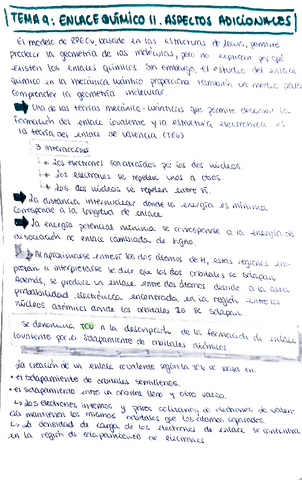 TEMA 9: ENLACE QUÍMICO II. ASPECTOS ADICIONALES
El modelo de RPECV, basado en las estructuras de Lewis, permite
predecir la geometría de las moléculas, pero no explican por qué
existen los enlaces químicos. Sin embargo, el estudio del enlace
químico en la mecánica cuántica proporciona también un medio para
comprender la geometría molecular.
Una de las teorías mecánico-cuánticas que permite describir la
formación del enlace covalente y la estructura electrónica es
la teoría del enlace de valencia (TEV)
3 interacciones
Los electrones son atraídos por los dos núcleos.
Los electrones se repelen unos a otros
Los dos núcleos se repelen entre sí.
La distancia internuclear donde la energía es mínima
corresponde a la longitud de enlace
La energía potencial mínima se corresponde a la energía de
disociación de enlace cambiada de signo.
Al aproximarse entre sí los dos átomos de H, estas regiones em-
piezan a interpenetrarse se dice que los dos orbitales se solapan.
Además, se produce un enlace entre dos átomos debido a la alta
probabilidad electrónica encontrada en la región entre los
núcleos atómicos donde los orbitales 1s se solapan.
Se denomina TEV a la descripción de la formación de enlace
covalente por el solapamiento de orbitales atómicos
La creación de un enlace covalente según la TEV se basa en:
• el solapamiento de orbitales semillenos.
• el solapamiento entre un orbital lleno y otro vacío.
Los electrones internos y pares solitarios de electrones de valen-
cia mantienen los mismos orbitales que los átomos separados
La densidad de carga de los electrones de enlace se concentra
en la región de solapamiento de electrones